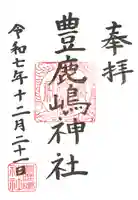 奉拝
豊鹿嶋神社
令和七年十二月二十一日